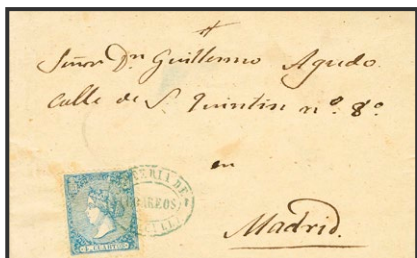 Señor Dn Guillermo Agudo
Calle de S. Quintin nº 8º
en
Madrid.
CORREOS